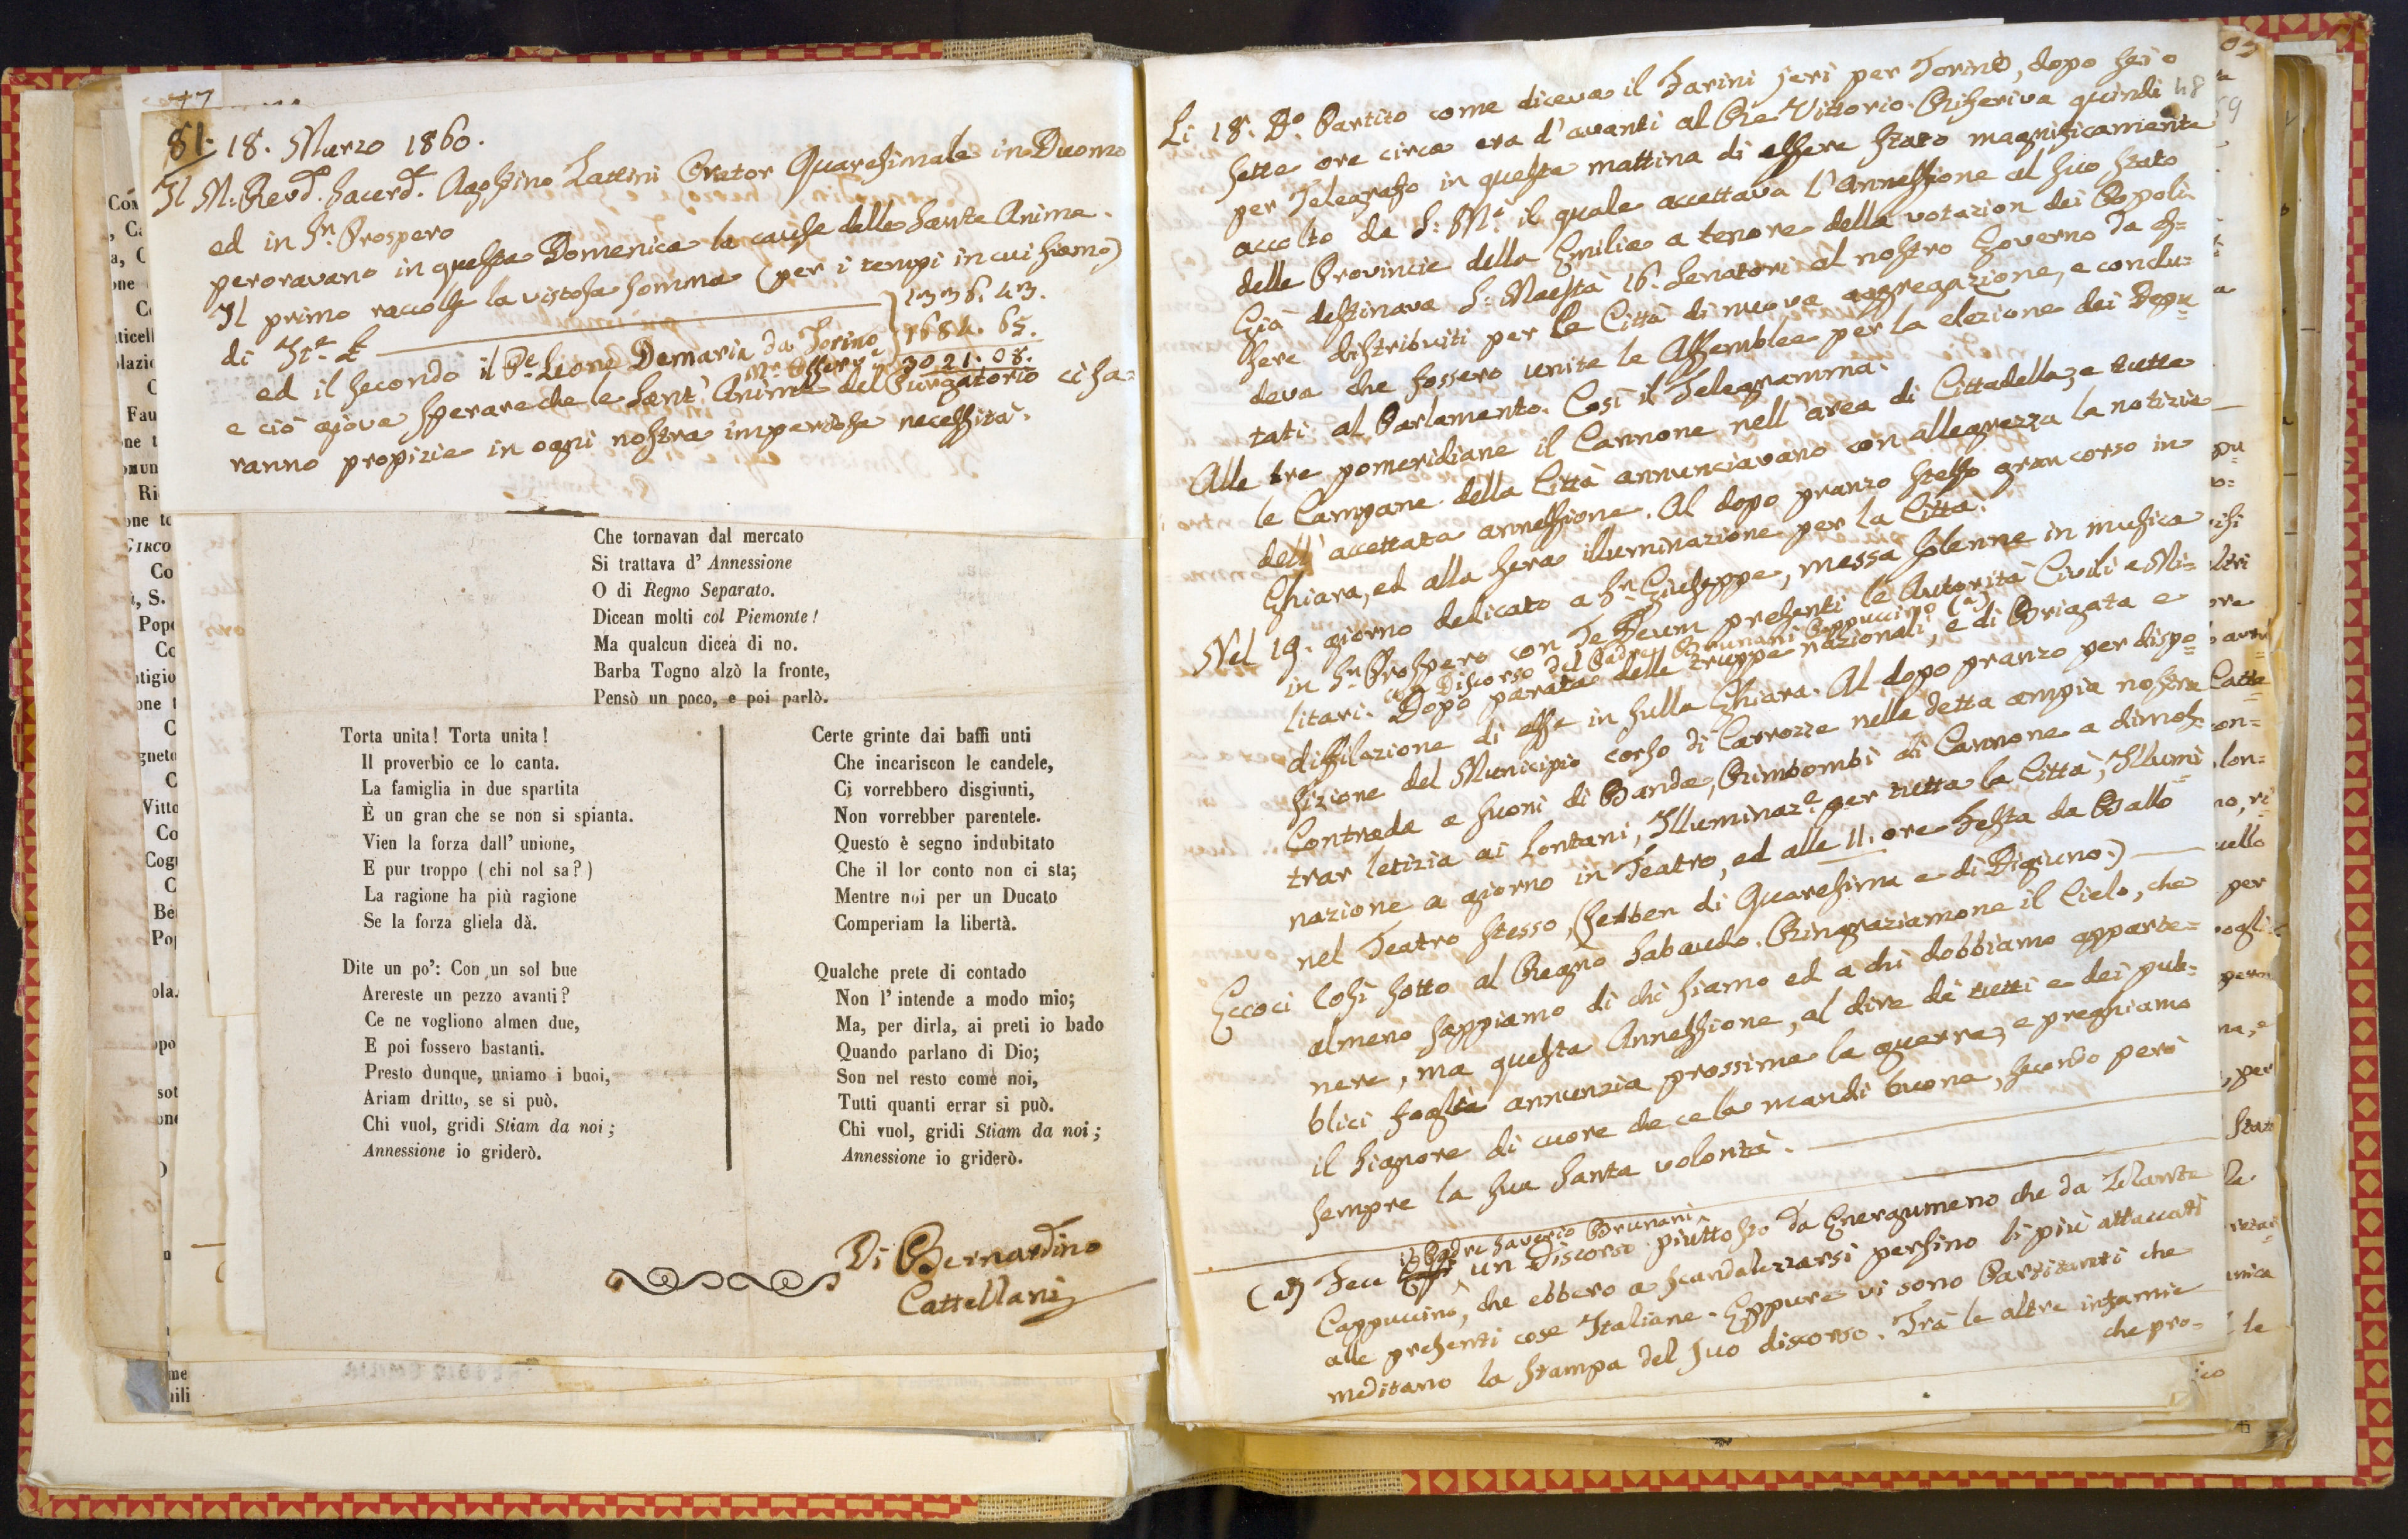 81. 18. Marzo 1860.
Il M. Revd. Sacerd. Agostino Lattini Orator Quaresimale in Duomo
ed in Sn. Prospero
peroravano in questa Domenica la causa delle Sante Anime.
Il primo raccolse la vistosa somma (per i tempi in cui siamo)
di It. £ 1336. 43.
ed il secondo il Pe. Leone Demaria da Torino 1684. 65.
Mr. Osserv.
3021. 08.
e ciò giova sperare che le Sant' Anime del Purgatorio ci sa-
ranno propizie in ogni nostra imperiosa necessità.
Che tornavan dal mercato
Si trattava d' Annessione
O di Regno Separato.
Dicean molti col Piemonte!
Ma qualcun dicea di no.
Barba Togno alzò la fronte,
Pensò un poco, e poi parlò.
Torta unita! Torta unita!
Il proverbio ce lo canta.
La famiglia in due spartita
È un gran che se non si spianta.
Vien la forza dall' unione,
E pur troppo (chi nol sa?)
La ragione ha più ragione
Se la forza gliela dà.
Dite un po': Con un sol bue
Arereste un pezzo avanti?
Ce ne vogliono almen due,
E poi fossero bastanti.
Presto dunque, uniamo i buoi,
Ariam dritto, se si può.
Chi vuol, gridi Stiam da noi;
Annessione io griderò.
Certe grinte dai baffi unti
Che incariscon le candele,
Ci vorrebbero disgiunti,
Non vorrebber parentele.
Questo è segno indubitato
Che il lor conto non ci sta;
Mentre noi per un Ducato
Comperiam la libertà.
Qualche prete di contado
Non l' intende a modo mio;
Ma, per dirla, ai preti io bado
Quando parlano di Dio;
Son nel resto come noi,
Tutti quanti errar si può.
Chi vuol, gridi Stiam da noi;
Annessione io griderò.
Di Bernardino
Cattellani
48
Li 18. Do. Partito come diceva il Farini jeri per Torino, dopo sei o
sette ore circa era d' avanti al Re Vittorio. Riferiva quindi
per Telegrafo in questa mattina di essere stato magnificamente
accolto da S. M. il quale accettava l' Annessione al suo Stato
delle Provincie della Emilia a tenore della votazion dei Popoli.
Già destinava S. Maestà 16. Senatori al nostro Governo da es=
sere distribuiti per le Città di nuova aggregazione, e conclu=
deva che fossero unite le Assemblee per la elezione dei Depu=
tati al Parlamento. Così il Telegramma.
Alle tre pomeridiane il Cannone nell' area di Cittadella, e tutte
le Campane della Città annunciavano con allegrezza la notizia
dell' accettata annessione. Al dopo pranzo stesso gran corso in
Ghiara, ed alla sera illuminazione per la Città.
Nel 19. giorno dedicato a Sn. Giuseppe, messa solenne in musica
in Sn. Prospero con Te Deum presenti le Autorità Civili e Mi=
con Discorso del Padre Brunani Cappuccino (a)
litari. Dopo parata delle truppe nazionali, e di Brigata e
diffilazione di esse in sulla Ghiara. Al dopo pranzo per dispo=
sizione del Municipio corso di Carrozze nella detta ampia nostra
Contrada e suoni di Banda, Rimbombi di Cannone a dimos=
trar letizia ai lontani, Illuminaz.e per tutta la Città, Illumi=
nazione a giorno in Teatro, ed alle 11. ore Festa da Ballo
nel Teatro stesso, (sebben di Quaresima e di Digiuno.)
Eccoci Così sotto al Regno Sabaudo. Ringraziamone il Cielo, che
almeno sappiamo di chi siamo ed a chi dobbiamo apparte=
nere, ma questa Annessione, al dire di tutti e dei pub=
blici foglia annunzia prossima la guerra, e pregniamo
il Signore di cuore che ce la mandi buona, secondo però
sempre la sua Santa volontà.
il Padre Saverio Brunani
(a) Fece un Discorso piuttosto da Energumeno che da Zelante
Cappuccino, che ebbero a scandalezzarsi persino li più attaccati
alle presenti cose Italiane. Eppure vi sono Partitanti che
meditano la stampa del suo discorso. Trà le altre infamie
che pro=